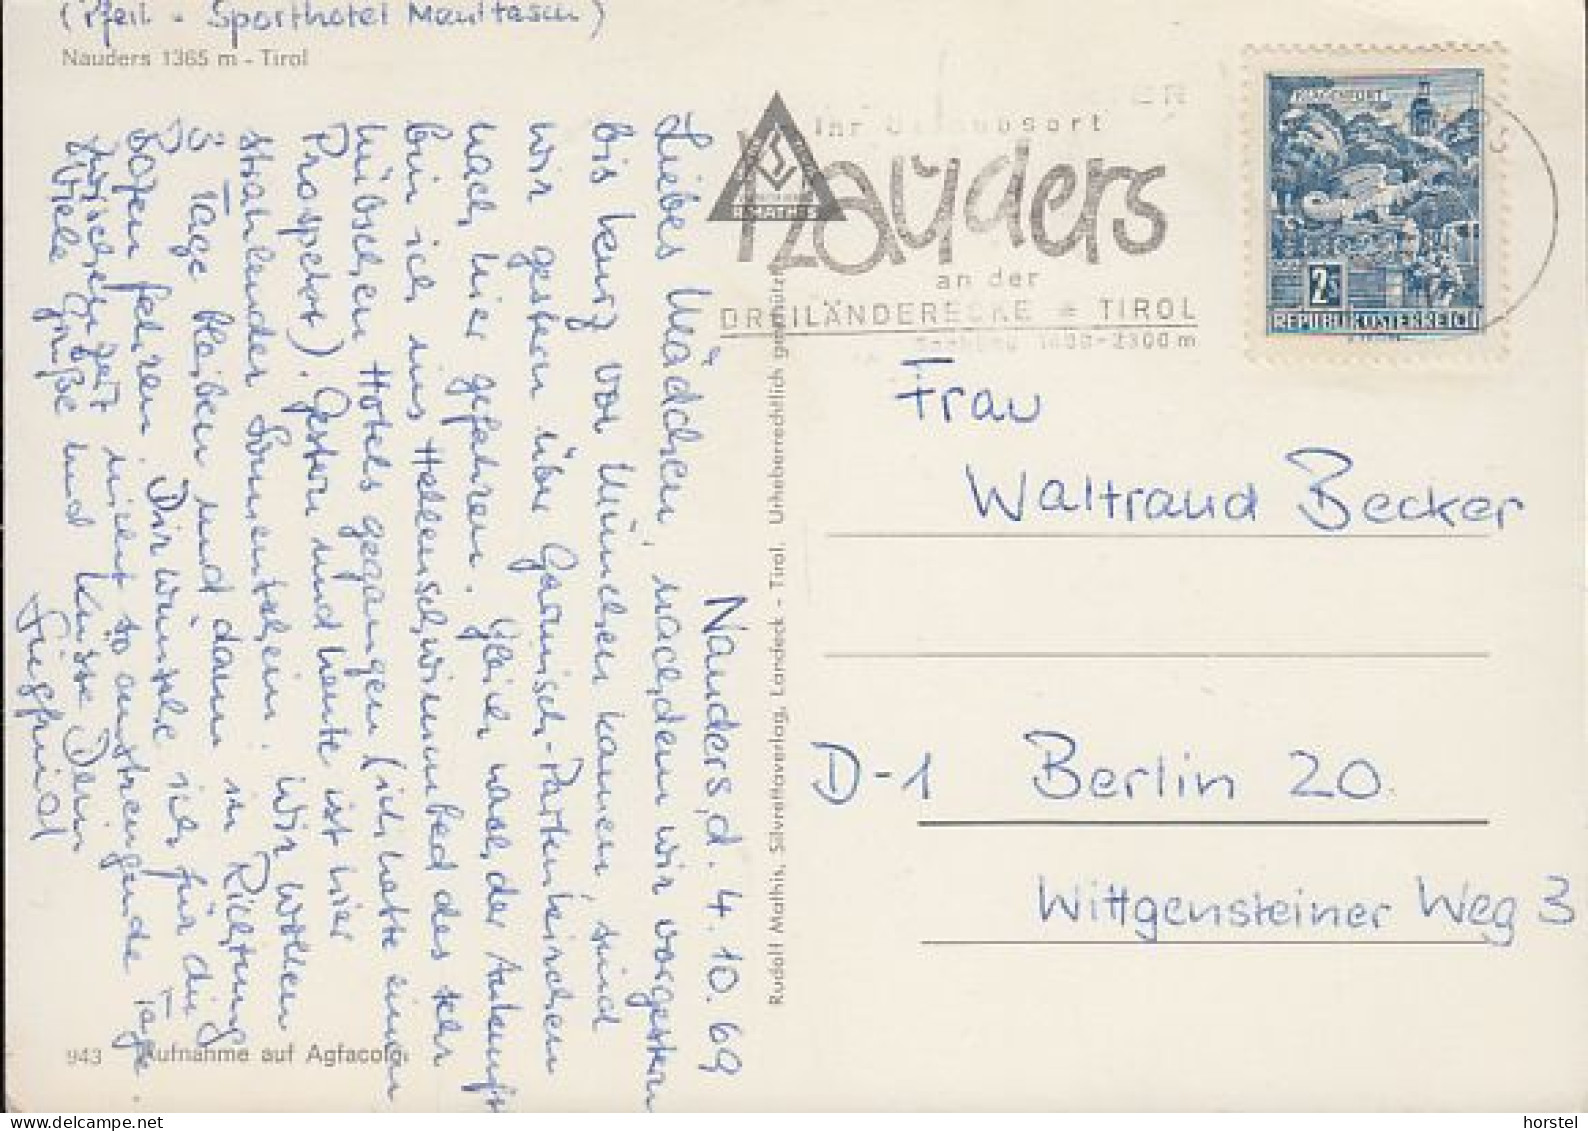 (Pfeil - Sporthotel Maultasch)
Nauders 1365 m - Tirol
Ihr Urlaubsort
Nauders
an der
DREILÄNDERECKE * TIROL
1400-2300 m
R. MATHIS
KLAGENFURT
2S
REPUBLIK ÖSTERREICH
Nauders, d. 4.10.69
Liebes Mädchen, nachdem wir vorgestern
bis kurz vor München kamen, sind
wir gestern über Garmisch-Partenkirchen
nach hier gefahren. Gleich nach der Ankunft
bin ich ins Hallenschwimmbad des sehr
hübschen Hotels gegangen (ich hatte einen
Prospekt). Gestern und heute ist hier
strahlender Sonnenschein. Wir wollen
3 Tage bleiben und dann in Richtung
Bozen fahren. Dir wünsche ich für die
Zwischenzeit nicht so anstrengende Tage.
Viele Grüße und Küsse Dein
Siegfried
Rudolf Mathis, Silvrettaverlag, Landeck - Tirol. Urheberrechtlich geschützt
Frau
Waltraud Becker
D-1 Berlin 20
Wittgensteiner Weg 3
943 Aufnahme auf Agfacolor
horstel